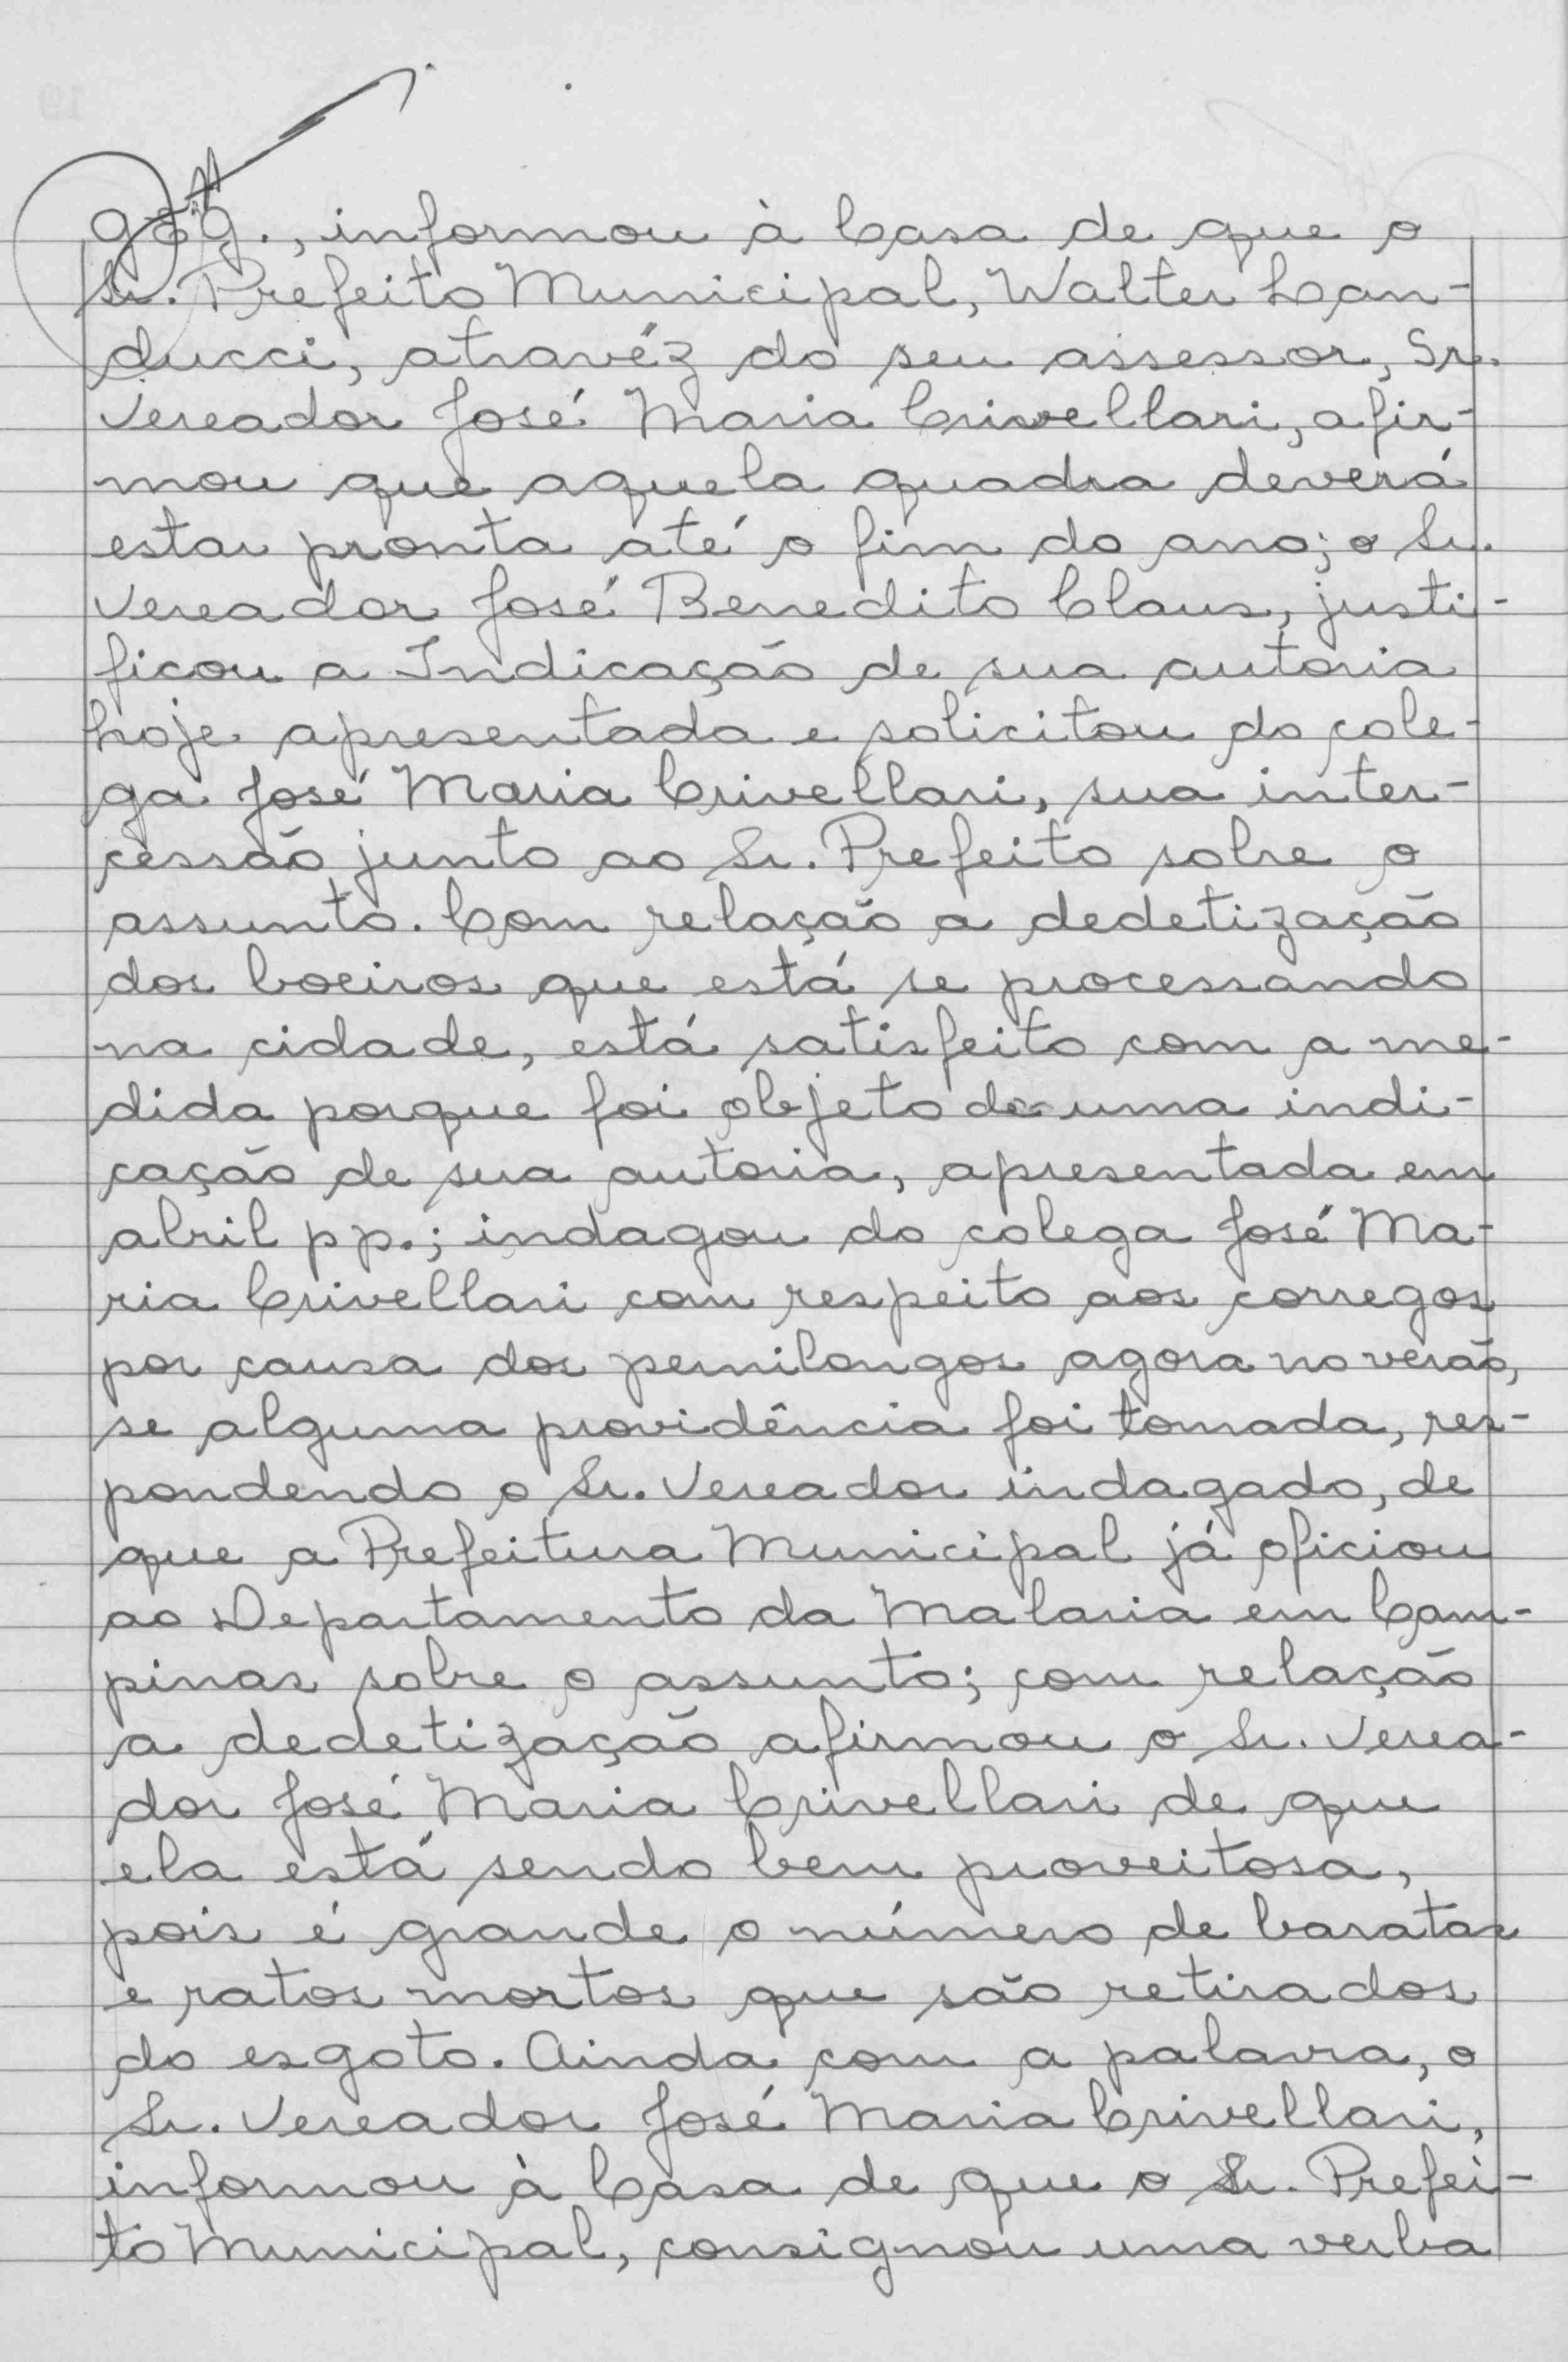 informou à Casa de que o
Sr. Prefeito Municipal, Walter Lan-
ducci, atravéz do seu assessor, Sr.
Vereador José Maria Crivellari, afir-
mou que aquela quadra deverá
estar pronta até o fim do ano; o Sr.
Vereador José Benedito Claus, justi-
ficou a Indicação de sua autoria
hoje apresentada e solicitou do cole-
ga José Maria Crivellari, sua inter-
cessão junto ao Sr. Prefeito sobre o
assunto. Com relação a dedetização
dos boeiros que está se processando
na cidade, está satisfeito com a me-
dida porque foi objeto de uma indi-
cação de sua autoria, apresentada em
abril pp.; indagou do colega José Ma-
ria Crivellari com respeito aos corregos
por causa dos pernilongos agora no verão,
se alguma providência foi tomada, res-
pondendo o Sr. Vereador indagado, de
que a Prefeitura Municipal já oficiou
ao Departamento da Malaria em Cam-
pinas sobre o assunto; com relação
a dedetização afirmou o Sr. Verea-
dor José Maria Crivellari de que
ela está sendo bem proveitosa,
pois é grande o número de baratas
e ratos mortos que são retirados
do esgoto. Ainda com a palavra, o
Sr. Vereador José Maria Crivellari,
informou à Casa de que o Sr. Prefei-
to Municipal, consignou uma verba